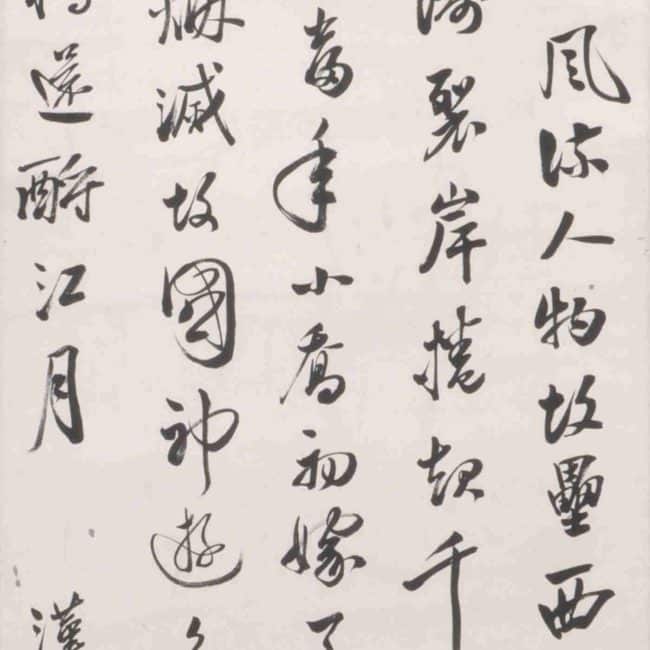 風流人物故壘西
裂岸捲起千
當年小喬初嫁了
滅故國神遊
還酹江月 漢